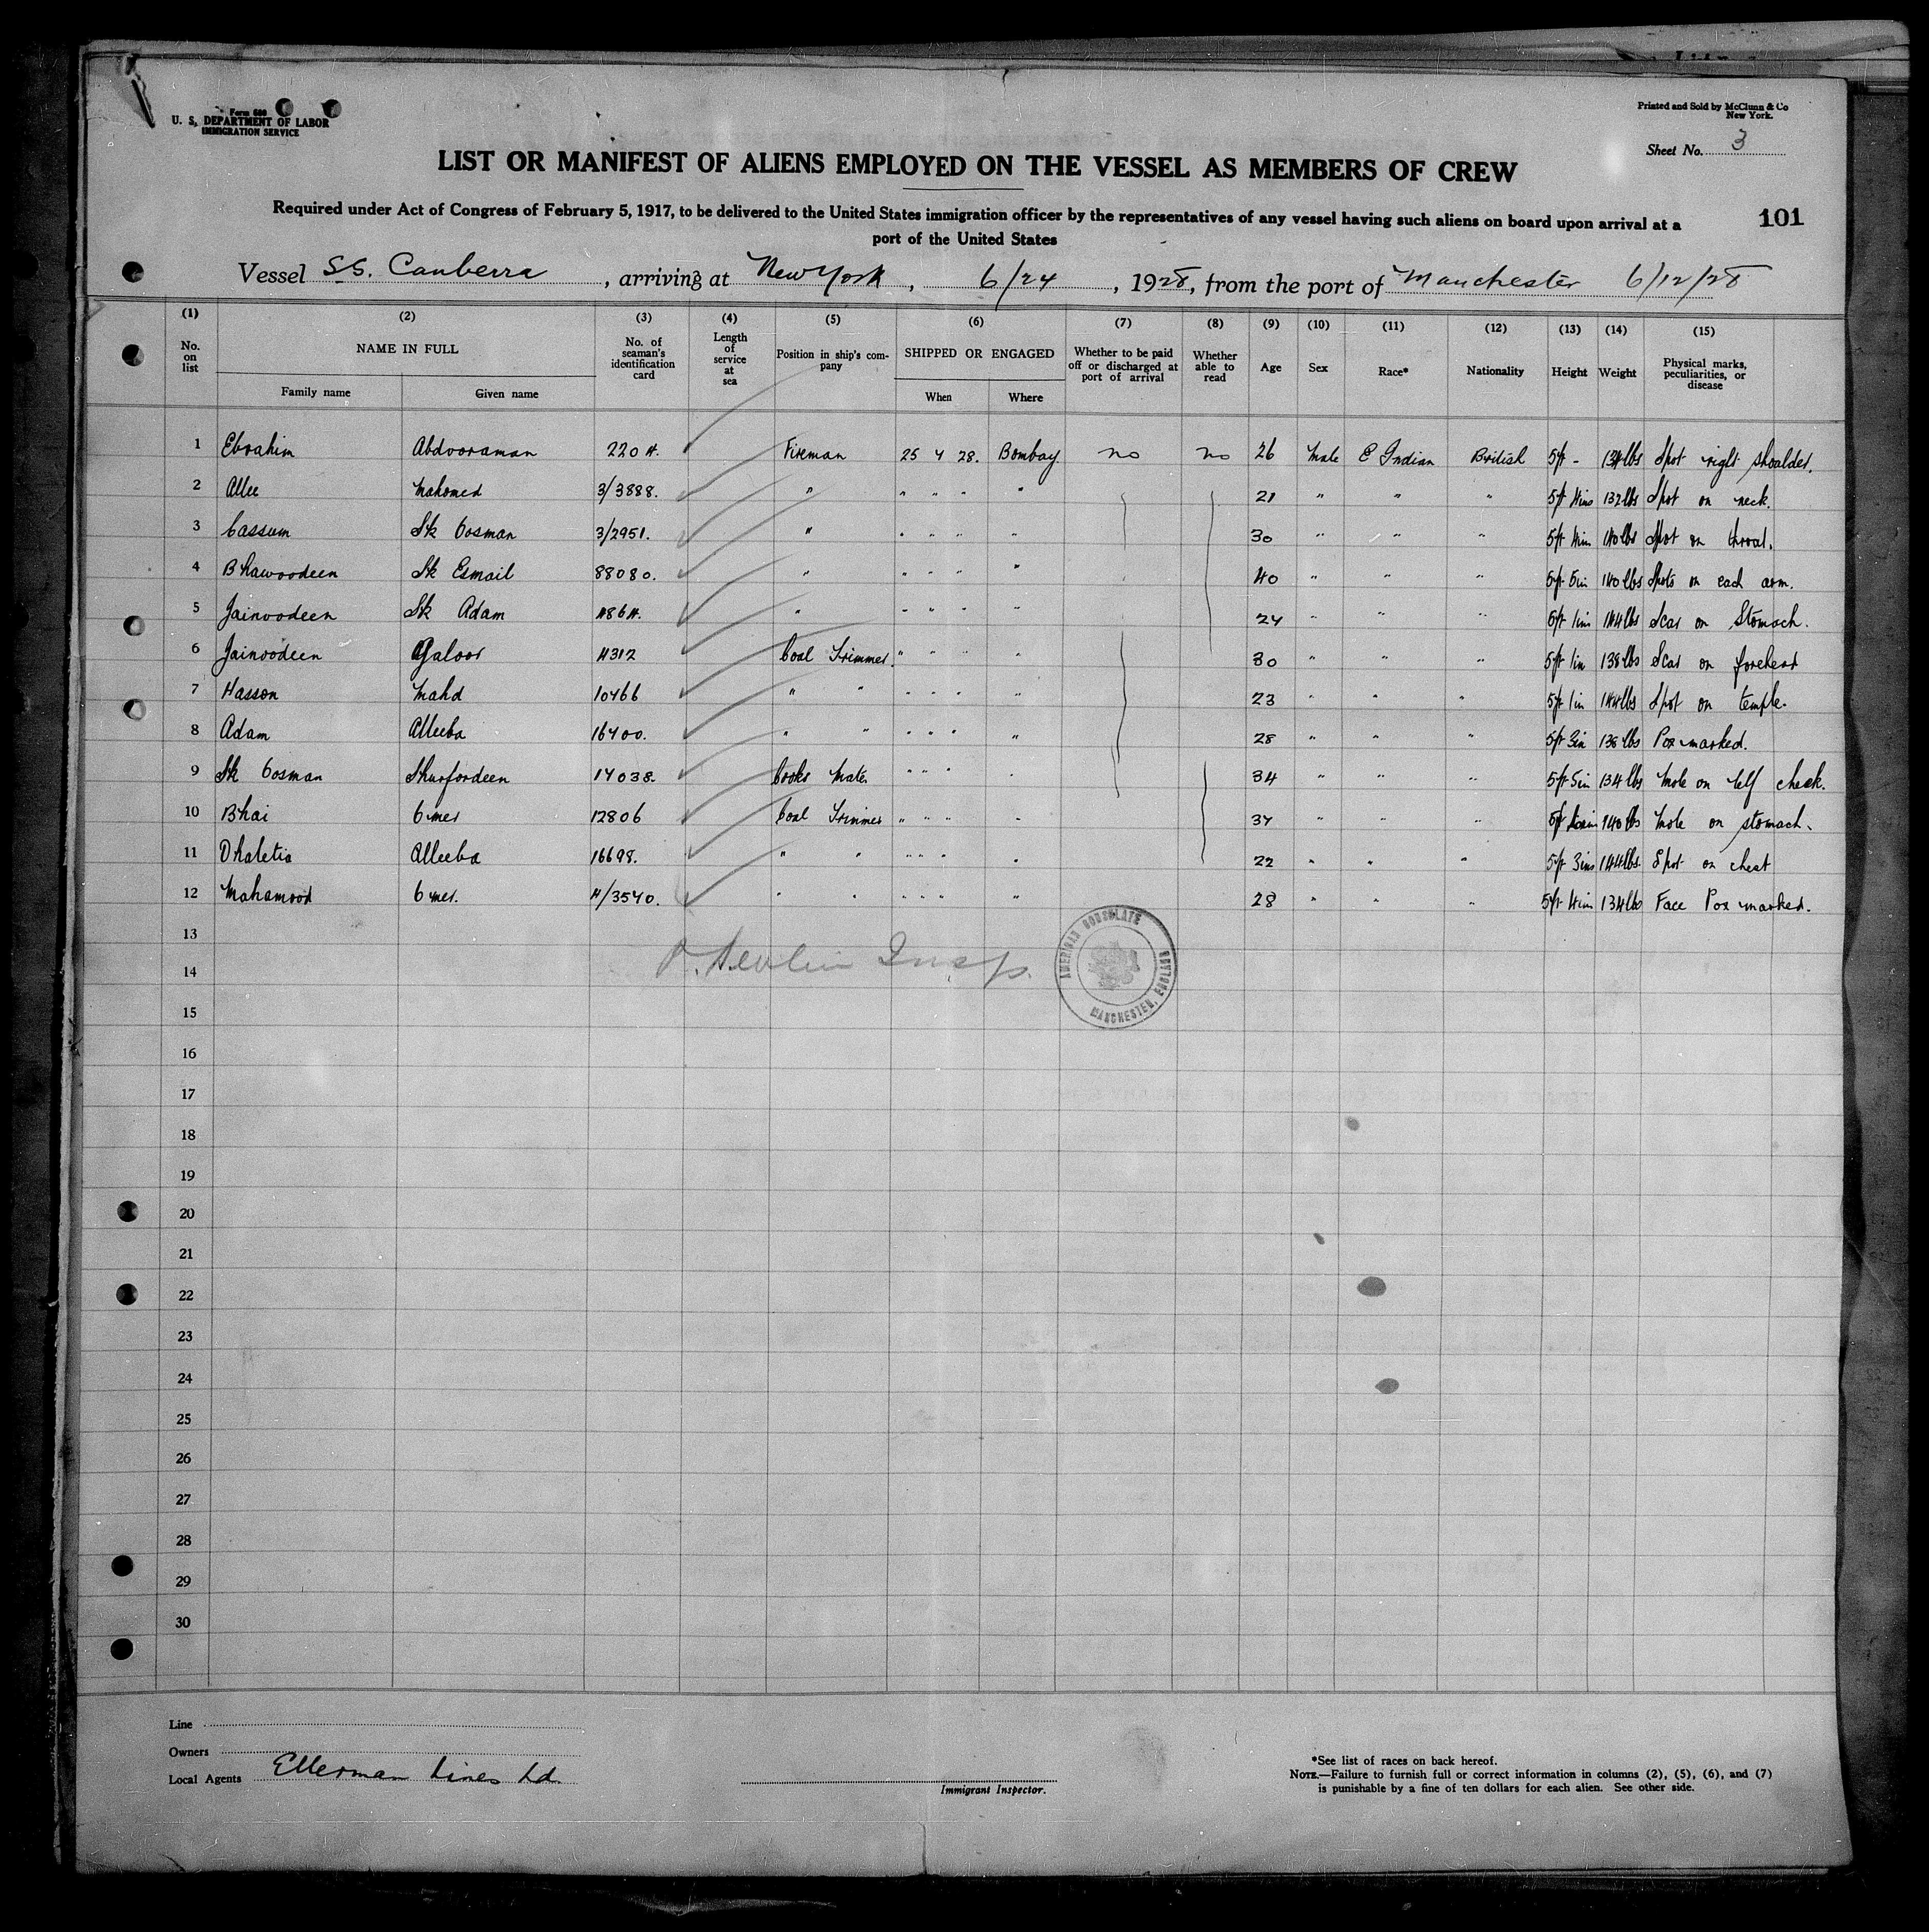 Form 680
U. S. DEPARTMENT OF LABOR
IMMIGRATION SERVICE
Printed and Sold by McClunn & Co
New York.
Sheet No. 3
LIST OR MANIFEST OF ALIENS EMPLOYED ON THE VESSEL AS MEMBERS OF CREW
Required under Act of Congress of February 5, 1917, to be delivered to the United States immigration officer by the representatives of any vessel having such aliens on board upon arrival at a
port of the United States
101
Vessel S.S. Canberra, arriving at New York, 6/24, 1928, from the port of Manchester 6/12/28
(1) (2) (3) (4) (5) (6) (7) (8) (9) (10) (11) (12) (13) (14) (15)
No. on list NAME IN FULL Family name Given name No. of seaman's identification card Length of service at sea Position in ship's company SHIPPED OR ENGAGED When Where Whether to be paid off or discharged at port of arrival Whether able to read Age Sex Race* Nationality Height Weight Physical marks, peculiarities, or disease
1 Ebrahim Abdooraman 220 4. Fireman 25 4 28. Bombay no no 26 Male E Indian British 5ft - 134lbs Spot right shoulder.
2 Allee Mahomed 3/3888. " " " " " 21 " " " 5ft 4ins 132lbs Spot on neck.
3 Cassum Sk Oosman 3/2951. " " " " " 30 " " " 5ft 4in 140lbs Spot on throat.
4 Bhawoodeen Sk Esmail 88080. " " " " " 40 " " " 5ft 5in 140lbs Spots on each arm.
5 Jainoodeen Sk Adam 4864. " " " " " 24 " " " 5ft 1in 144lbs Scar on Stomach.
6 Jainoodeen Gafoor 4312 Coal Trimmer. " " " " 30 " " " 5ft 1in 138lbs Scar on forehead
7 Hasson Mahd 10466 " " " " " " 23 " " " 5ft 1in 144lbs Spot on temple.
8 Adam Alleeba 16400. " " " " " " 28 " " " 5ft 3in 138lbs Pox marked.
9 Sk Oosman Shurfordeen 14038. Cooks Mate. " " " " 34 " " " 5ft 5in 134lbs Mole on left cheek.
10 Bhai Omer 12806 Coal Trimmer " " " " 37 " " " 5ft 140lbs Mole on stomach.
11 Dhaletia Alleeba 16698. " " " " " " 22 " " " 5ft 3ins 144lbs. Spot on chest
12 Mahamood Omer. 4/3540. " " " " " " 28 " " " 5ft 4in 134lbs Face Pox marked.
13
14 Insp.
AMERICAN CONSULATE
MANCHESTER, ENGLAND
15
16
17
18
19
20
21
22
23
24
25
26
27
28
29
30
Line
Owners
Local Agents Ellerman Lines Ld.
Immigrant Inspector.
*See list of races on back hereof.
NOTE.—Failure to furnish full or correct information in columns (2), (5), (6), and (7)
is punishable by a fine of ten dollars for each alien. See other side.